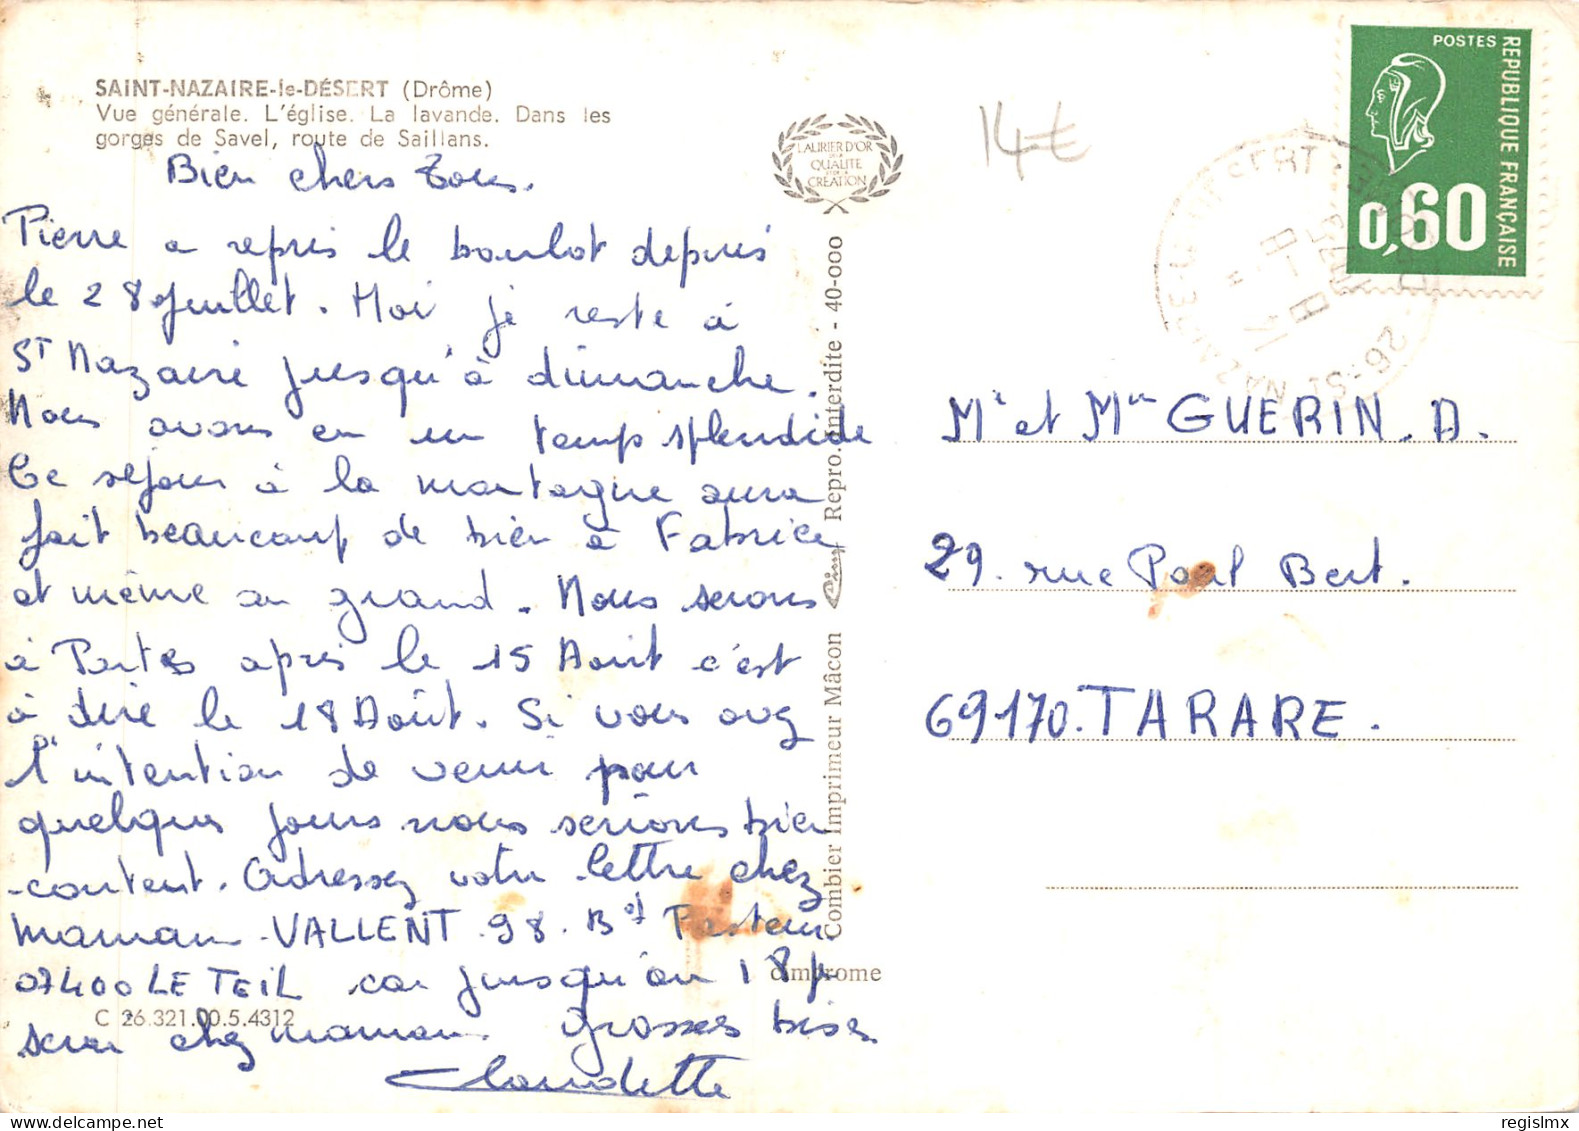 SAINT-NAZAIRE-le-DÉSERT (Drôme)
Vue générale. L'église. La lavande. Dans les
gorges de Savel, route de Saillans.
Bien chers tous.
Pierre a repris le boulot depuis
le 28 Juillet. Moi je reste à
ST Nazaire jusqu'à dimanche.
Nous avons eu un temps splendide
Ce séjour à la montagne aura
fait beaucoup de bien à Fabrice
et même au grand. Nous serons
à Portes après le 15 Août c'est
à dire le 18 Août. Si vous avez
l'intention de venir pour
quelques jours nous serions bien
content. Adressez votre lettre chez
maman VALLENT 98. Bd Pasteur
07400 LE TEIL car jusqu'au 18 je
serai chez maman. Grosses bises
Claudette
C 26.321.00.5.4312
LAURIER D'OR
DE LA
QUALITÉ
ET DE LA
CRÉATION
Combier Imprimeur Mâcon Cim Repro. Interdite - 40-000
cimprome
14€
POSTES
REPUBLIQUE FRANÇAISE
0,60
26-ST NAZAIRE-LE-DESERT
Mr et Mme GUERIN. A.
29. rue Paul Bert.
69170. TARARE.
regislmx